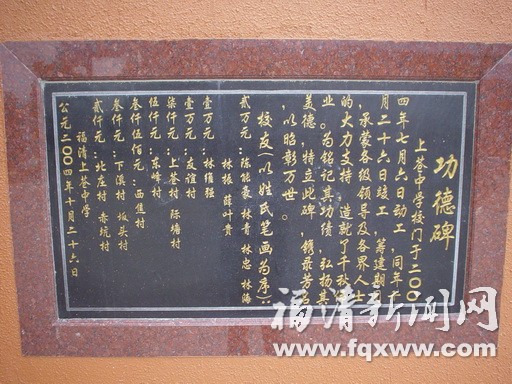 功德碑
上荅中学校门于二00
四年七月六日动工,同年十
月二十六日竣工,筹建期间
承蒙各级领导及各界人士
的大力支持,造就了千秋伟
业。为铭记其功绩,弘扬其
美德,特立此碑,镌录芳名
,以昭彰万世。
校友(以姓氏笔画为序):
贰万元:陈能豪 林青 林忠 林海
林振 薛叶贵
壹万元:林维强
壹万元:友谊村
柒仟元:上荅村 际塘村
伍仟元:东峰村
叁仟伍佰元:西焦村
叁仟元:下溪村 坂头村
贰仟元:北庄村 赤坑村
福清上荅中学
公元二00四年十月二十六日
福清新闻网
www.fqxww.com